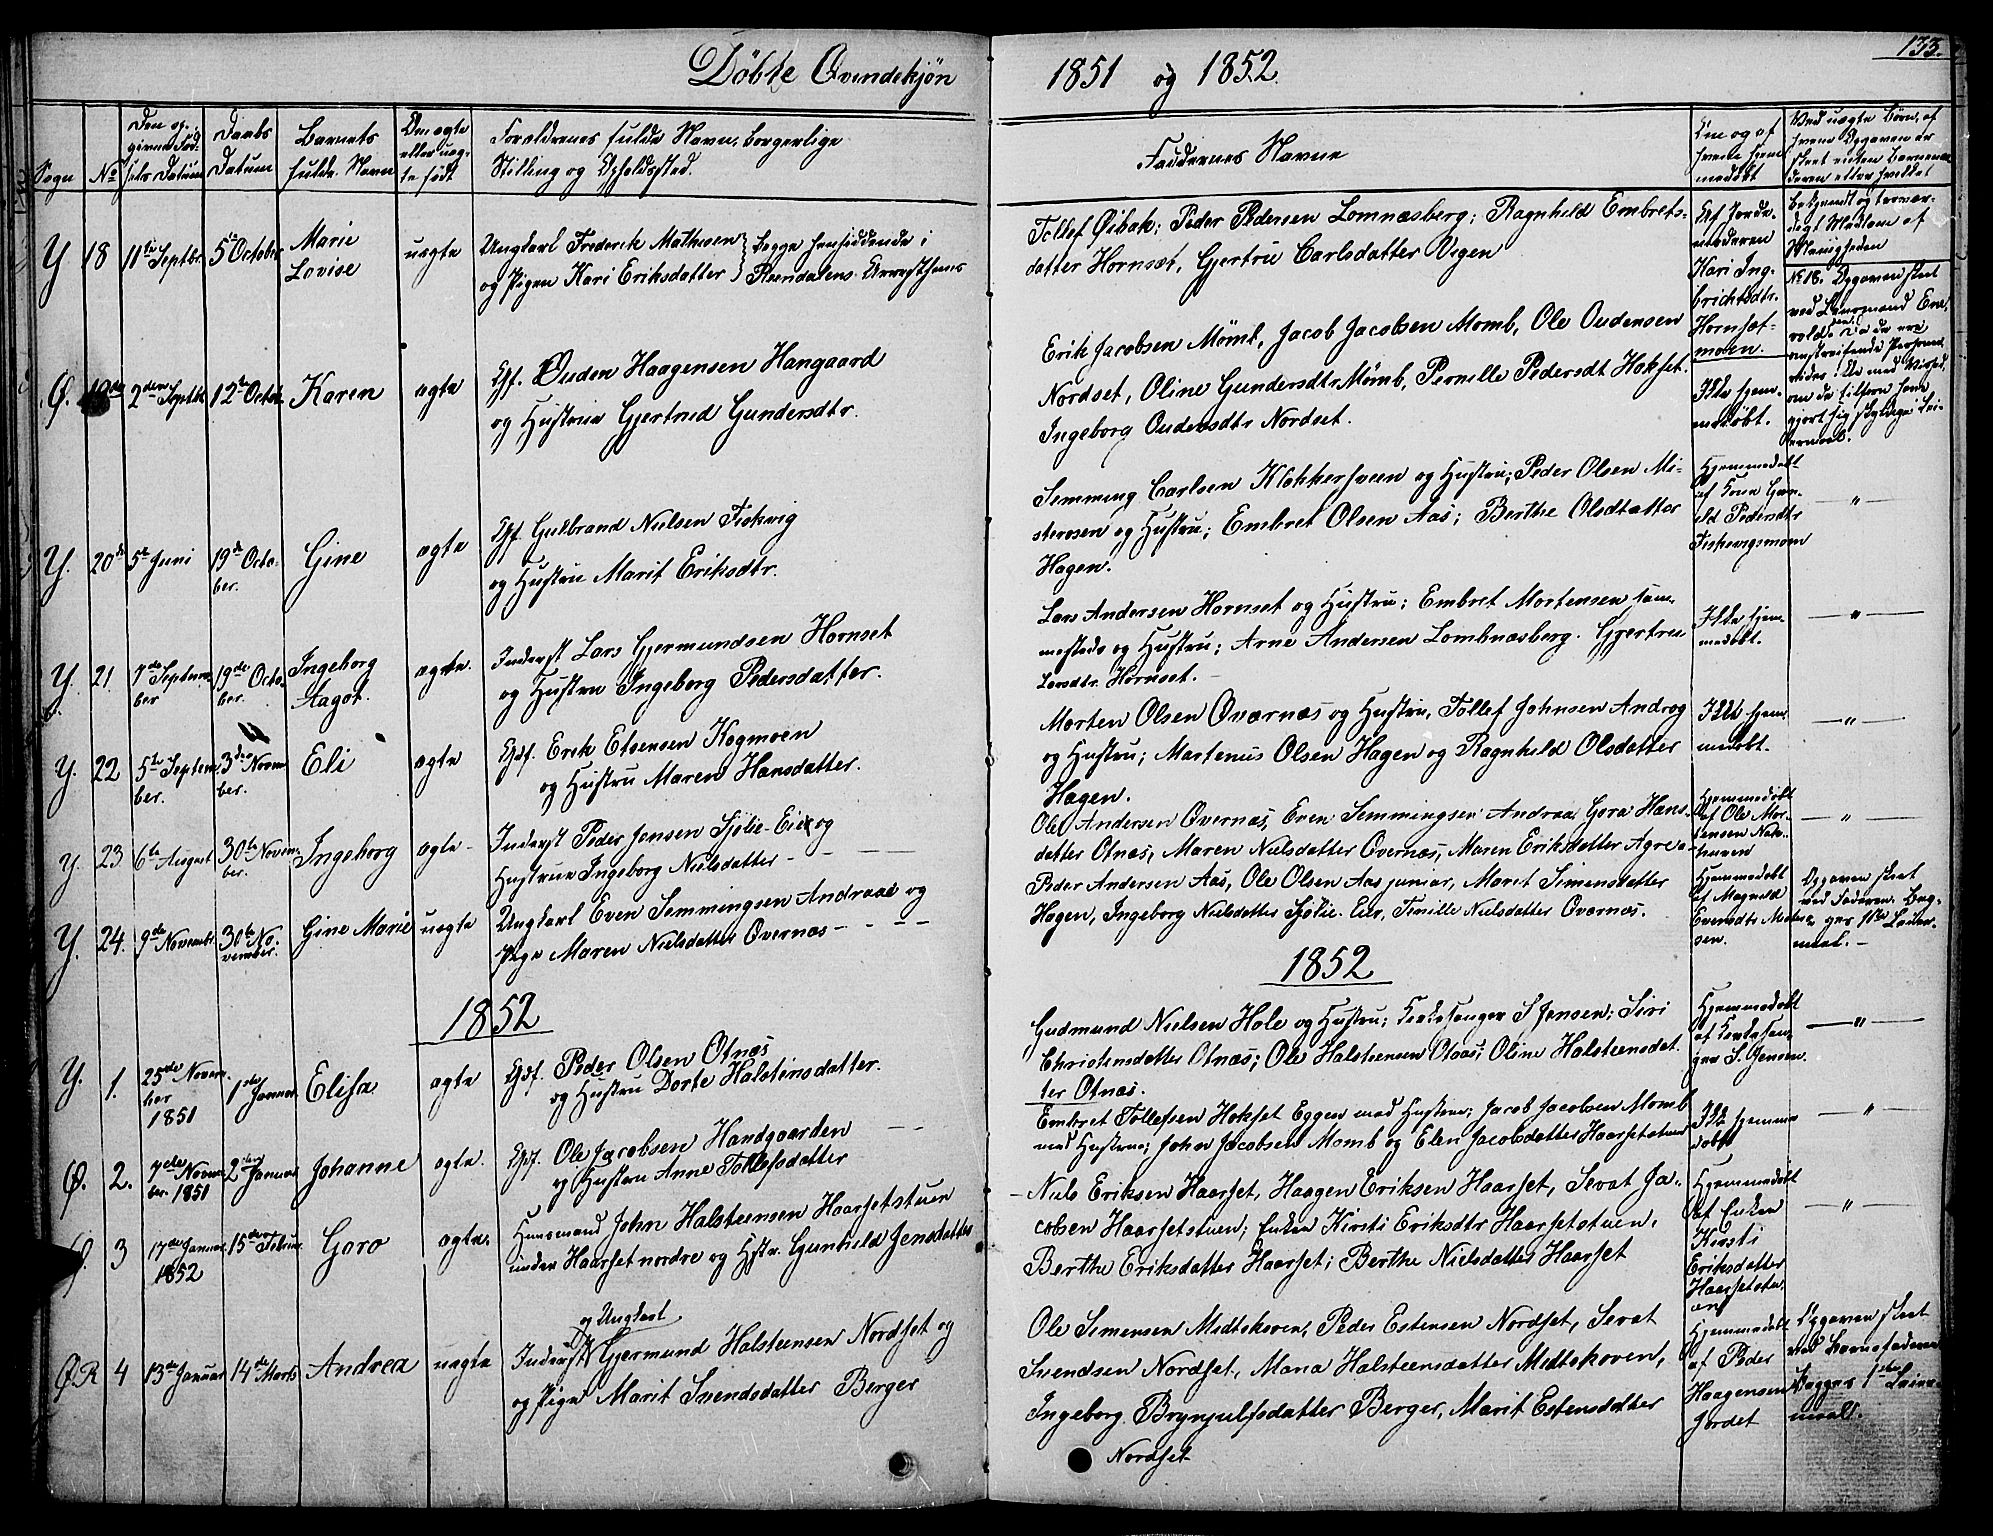 Döbte Qvindekjön
1851 og 1852.
133.
Sogn
No
Den op-
givne Föd-
sels Datum
Daabs
Datum
Barnets
fulde Navn
Om ægte
eller uæg-
te født
Forældrenes fulde Navn, borgerlige
Stilling og Opholdssted.
Faddernes Navne
Om og af
hvem hjem-
medöbt
Ved uægte Börn, af
hvem Opgaven er
skeet
Y 18 11te Septbr. 5te October Marie
Lovise
uægte
Ungkarl Frederik Mathisen
og Pigen Kari Eriksdatter
begge hensiddende i
Reendalens Arresthuus
Tollef Öibak; Peder Pedersen Lomnæsberg; Ragnhild Embrets-
datter Hornset, Gjertru Carlsdatter Vegen
Af Jorde-
moderen
Kari Ing-
brichtsdtr.
Hornset-
moen.
No 18. Opgaven skeet
Ø. 19de 2den Septbr. 12te Octob. Karen ægte
Gf. Ouden Haagensen Hangaard
og Hustrue Gjertrud Gundersdtr.
Erik Jacobsen Mömb, Jacob Jacobsen Momb, Ole Oudensen
Nordset, Oline Gundersdtr Mömb, Pernille Pedersdt Hokset.
Ingeborg Oudensdtr Nordset.
Ikke hjem-
medöbt.
Y. 20de 5te Juni 19de Octo-
ber. Gine ægte
Gf. Gulbrand Nielsen Fiskvig
og Hustru Marit Eriksdtr.
Semming Carlsen Klokkersveen og Hustru; Peder Olsen Mi-
sterosen og Hustru; Embret Olsen Aas; Berthe Olsdtatter
Hagen.
Hjemmedöbt
af Kone
Pedersdtr
Fiskevigsmoen
— " —
Y. 21. 7de Septem-
ber 19de Octo-
ber. Ingeborg
Aagot. ægte.
Inderst Lars Gjermundsen Hornset
og Hustru Ingeborg Pedersdatter.
Lars Andersen Hornset og Hustru; Embret Mortensen sam-
mesteds og Hustru; Arne Andersen Lombnæsberg. Gjertru
Larsdtr. Hornset.
Ikke hjem-
medöbt.
— " —
Y. 22 5te Septem-
ber. 3die Novem-
ber. Eli ægte
Gdf. Erik Etsensen Kogmoen
og Hustru Maren Hansdatter.
Morten Olsen Qværnæs og Hustru, Tollef Johnsen Androg
og Hustru; Martenus Olsen Hagen og Ragnhild Olsdatter
Hagen.
Ikke hjem-
medöbt.
— " —
Y. 23 6te August 30te Novem-
ber. Ingeborg ægte -
Inderst Peder Jensen Sjölie-Eie og
Hustrue Ingeborg Nielsdatter
Ole Andersen Qvernæs, Even Semmingsen Andraa, Gora Hans-
datter Otnæs, Maren Nielsdatter Qvernæs, Maren Eriksdatter Agre
Hjemmedöbt
af Ole Mor-
tensen
— " —
Y. 24. 9de Novembr. 30te No-
vember. Gine Marie uægte
Ungkarl Even Semmingsen Andraae og
Pige Maren Nielsdatter Qvernæs
Peder Andersen Aas, Ole Olsen Aas junior, Marit Simensdatter
Hagen, Ingeborg Nielsdatter Sjölie-Eier, Tenille Nielsdatter Qværnæs.
Hjemmedöbt
af Magnild
Evensdtr
sen.
Opgaven skeet
ved Faderen. Beg-
ges 1ste Leier-
maal. -
1852
1852
Y. 1. 25de Novem-
ber
1851 1ste Januar Elisa ægte
Gdf. Peder Olsen Otnæs
og Hustru Dorte Halstensdatter.
Gudmund Nielsen Hole og Hustru; Kirkesanger S Jensen; Siri
Christensdatter Otnæs; Ole Halsteensen Otnæs; Oline Halsteensdat-
ter Otnæs.
Hjemmedöbt
af Kirkesan-
ger S. Jensen.
— " —
Ø. 2. 7de Novem-
ber. 1851 2den Januar Johanne ægte.
Gdf. Ole Jacobsen Handgaarden
og Hustru Anne Tollefsdatter
Embret Tollefsen Hokset Eggen med Hustrue; Jacob Jacobsen Momb
med Hustrue; John Jacobsen Momb og Elen Jacobsdatter Haarsetstuen
Ikke hjemme-
döbt
— " —
Ø. 3 17de Januar
1852 15de Februar Goro ægte.
Huusmand John Halsteensen Haarsetstuen
under Haarset nordre og Hstr. Gunhild Jensdatter
Niels Eriksen Haarset, Haagen Eriksen Haarset, Sevat Ja-
cobsen Haarsetstuen; Enken Kirsti Eriksdtr Haarsetstuen,
Berthe Eriksdatter Haarset; Berthe Nielsdatter Haarset
Hjemmedöbt
af Enken
Kirsti
Eriksdatter
Haarsetstu-
en
— " —
ØR 4 13de Januar 14de Marts Andrea uægte
og Ungkarl
Inderst Gjermund Halsteensen Nordset og
og Pige Marit Svendsdatter Berger
Ole Simensen Midtskoven, Peder Estensen Nordset, Sevat
Svendsen Nordset, Maria Halsteensdatter Midtskoven,
Ingeborg Brynjulfsdatter Berger, Marit Estensdatter
Nordset
Hjemmedöbt
af Peder
Haagensen
Jordet
Opgaven skeet
ved Barnefaderen
Begges 1ste Leier-
maal.